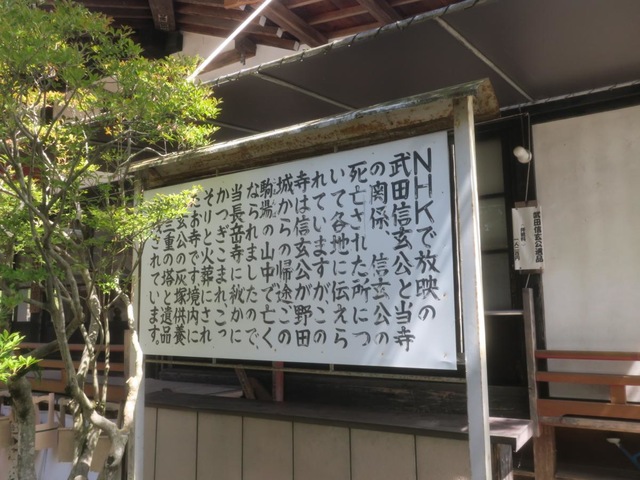 NHKで放映の
武田信玄公と当寺
の関係 信玄公の
死亡された所につ
いて各地に伝えら
れていますがこの
寺は信玄公が野田
城からの帰途この
駒場の山中で亡く
なられましたので、
当長岳寺に秘かに
かつぎこまれこっ
そりと火葬にされ
たお寺です境内に
公の灰塚供養
三重の塔と遺品
残されています。
武田信玄公遺品